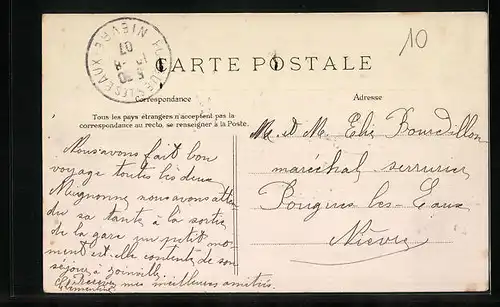 10
POUGUES-LES-EAUX NIEVRE
CARTE POSTALE
Correspondance
Adresse
Tous les pays étrangers n'acceptent pas la
correspondance au recto, se renseigner à la Poste.
Nous avons fait bon
voyage toutes les deux
Mignonne nous avons atten
du sa tante à la sortie
de la gare un petit mo
ment est elle contente de son
séjour à Joinville
Clémentine mes meilleures amitiés
M. et M. Elie Bourdillon
maréchal serrurier
Pougues les Eaux
Nièvre